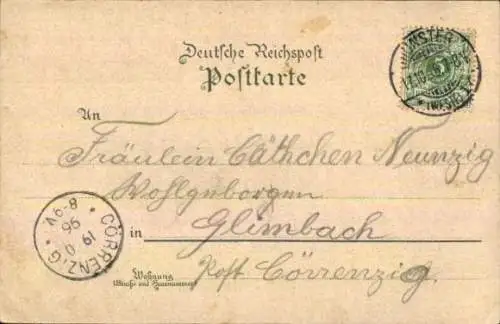 Deutsche Reichspost
Postkarte
MÜNSTER
5
* (WESTF.)
An
Fräulein Käthchen Neunzig
Wohlgeboren
in Glimbach
Post Cörrenzig.
Wohnung
(Straße und Hausnummer)
CÖRRENZIG
19
96
8-9V